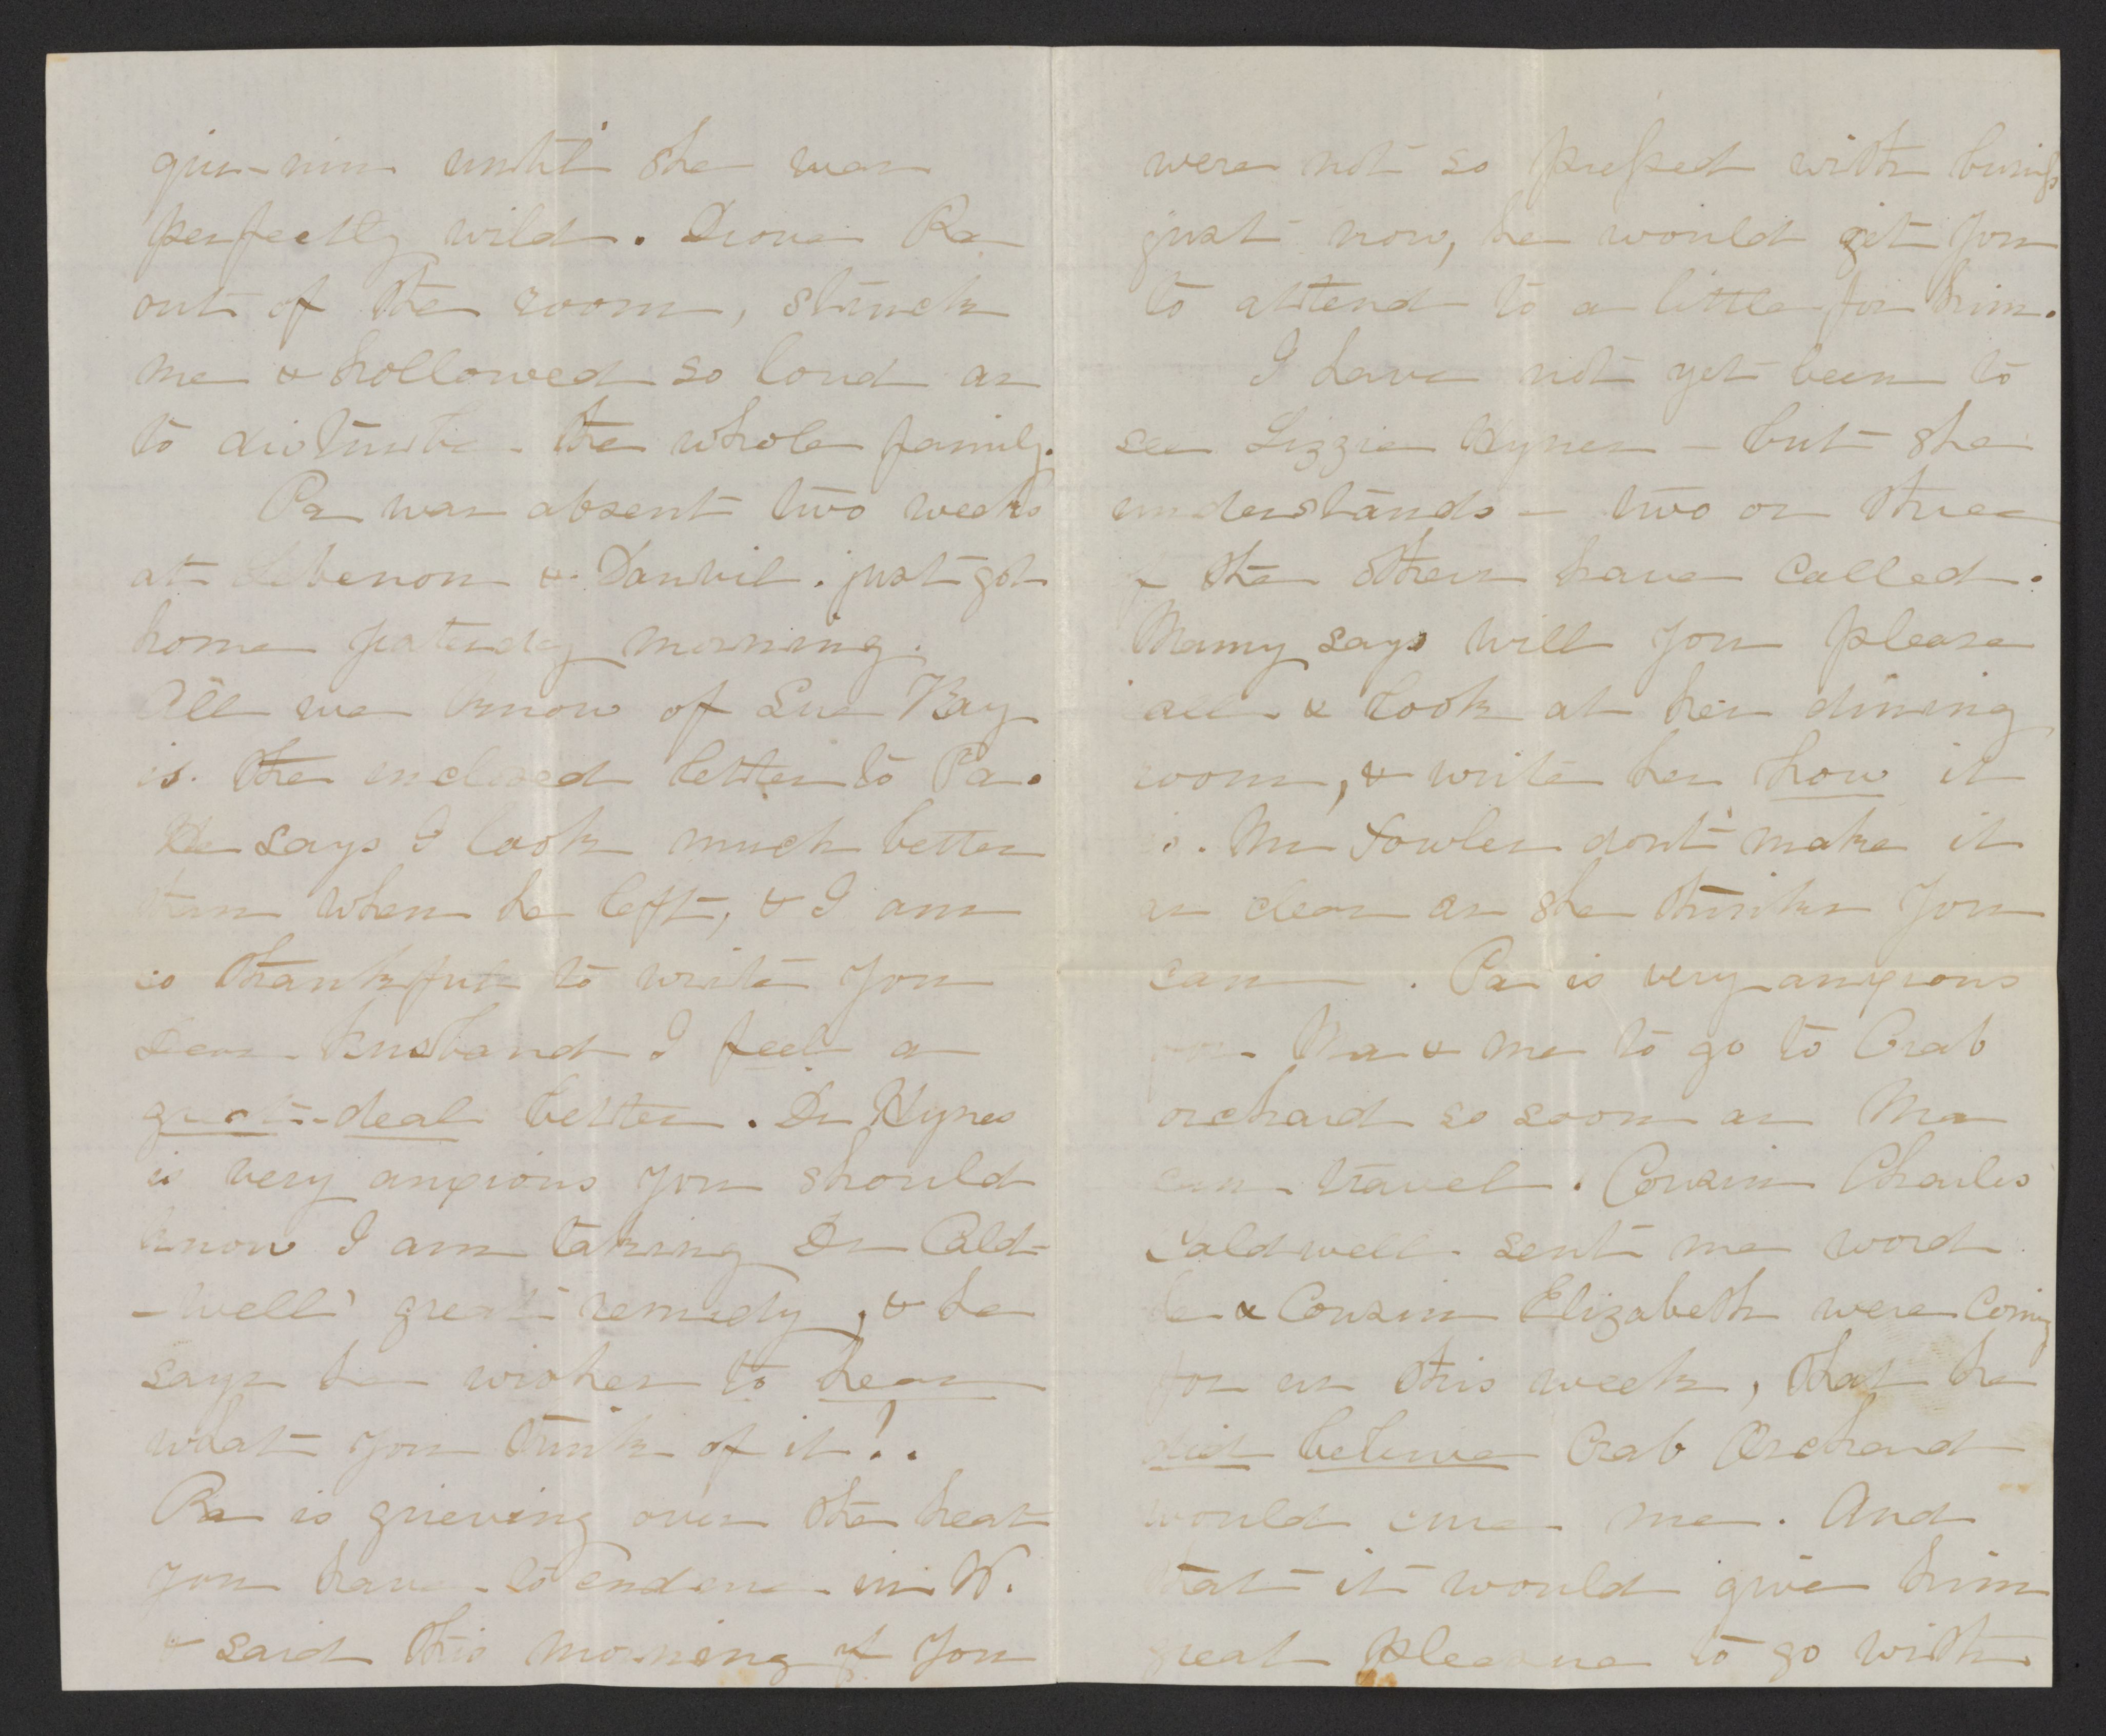 qui-nin until she was
perfectly wild. Drove Pa
out of the room, struck
me & hollowed so loud as
to disturbe - the whole family.
Pa was absent two weeks
at Lebenon & Danvil. just got
home yesterday morning.
All we know of Sue Kay
is. the inclosed letter to Pa.
He says I look much better
than when he left, & I am
so thankful to write you
Dear - Husband I feel a
great - deal better. Dr Hynes
is very anxious you should
know I am taking Dr Cald-
-well' great remedy, & he
says he wishes to hear
what you think of it!.
Pa is grieving over the heat
you have - to endure - in W.
& said this morning if you
were not so pressed with busines
just now, he would get you
to attend to a little for him.
I have not yet been to
see Lizzie Hynes - but she
understands - two or three
of the others have called.
Mamy says will you please
call & look at her dining
room, & write her how it
is. Mr Fowler dont make it
as clear as she thinks you
can. Pa is very anxious
for - Ma & me to go to Crab
orchard so soon as Ma
can travel. Cousin Charles
Caldwell - sent me word
he & Cousin Elizabeth were coming
for us this week, that he
did believe Crab Orchard
would cure me. And
that it would give him
great pleasure to go with